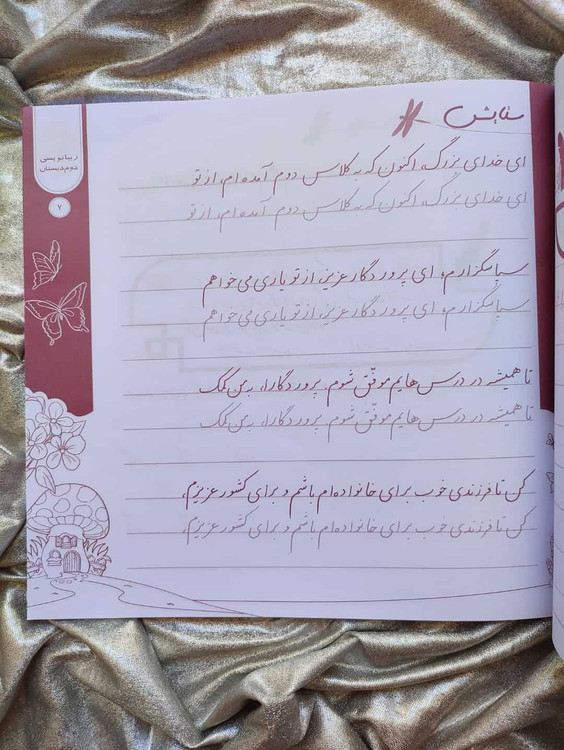 ستایش
زیبانویسی
دوم دبستان
۷
ای خدای بزرگ، اکنون که به کلاس دوم آمده‌ام، از تو
ای خدای بزرگ، اکنون که به کلاس دوم آمده‌ام، از تو
سپاسگزارم، ای پروردگار عزیز، از تو یاری می‌خواهم
سپاسگزارم، ای پروردگار عزیز، از تو یاری می‌خواهم
تا همیشه در درس‌هایم موفّق شوم. پروردگارا، به من کمک
تا همیشه در درس‌هایم موفّق شوم. پروردگارا، به من کمک
کن تا فرزندی خوب برای خانواده‌ام باشم و برای کشور عزیزم،
کن تا فرزندی خوب برای خانواده‌ام باشم و برای کشور عزیزم،